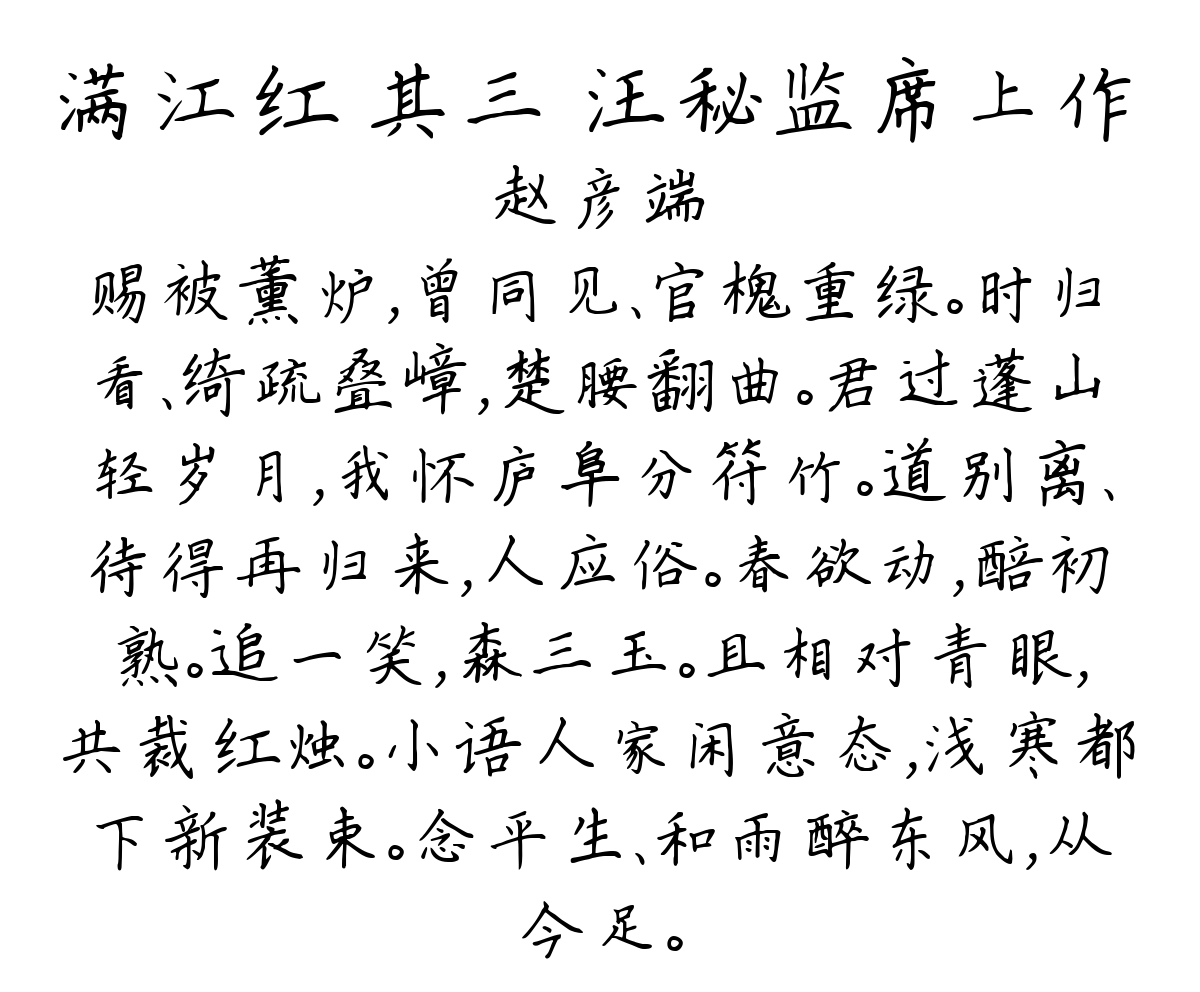 满江红 其三 汪秘监席上作
赵彦端
赐被薰炉,曾同见、官槐重绿。时归
看、绮疏叠嶂,楚腰翻曲。君过蓬山
轻岁月,我怀庐阜分符竹。道别离、
待得再归来,人应俗。春欲动,醅初
熟。追一笑,森三玉。且相对青眼,
共裁红烛。小语人家闲意态,浅寒都
下新装束。念平生、和雨醉东风,从
今足。